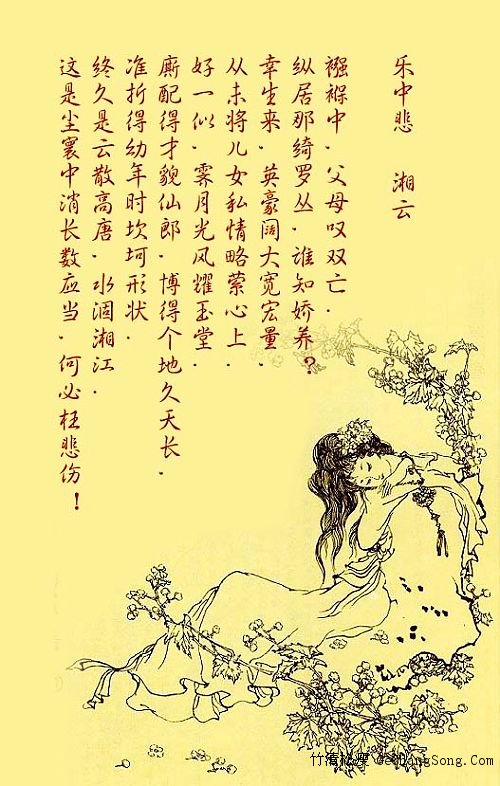 乐中悲 湘云
襁褓中．父母叹双亡．
纵居那绮罗丛．谁知娇养？
幸生来．英豪阔大宽宏量．
从未将儿女私情略萦心上．
好一似．霁月光风耀玉堂．
厮配得才貌仙郎．博得个地久天长．
准折得幼年时坎坷形状．
终久是云散高唐．水涸湘江．
这是尘寰中消长数应当．何必枉悲伤！
竹清松瘦